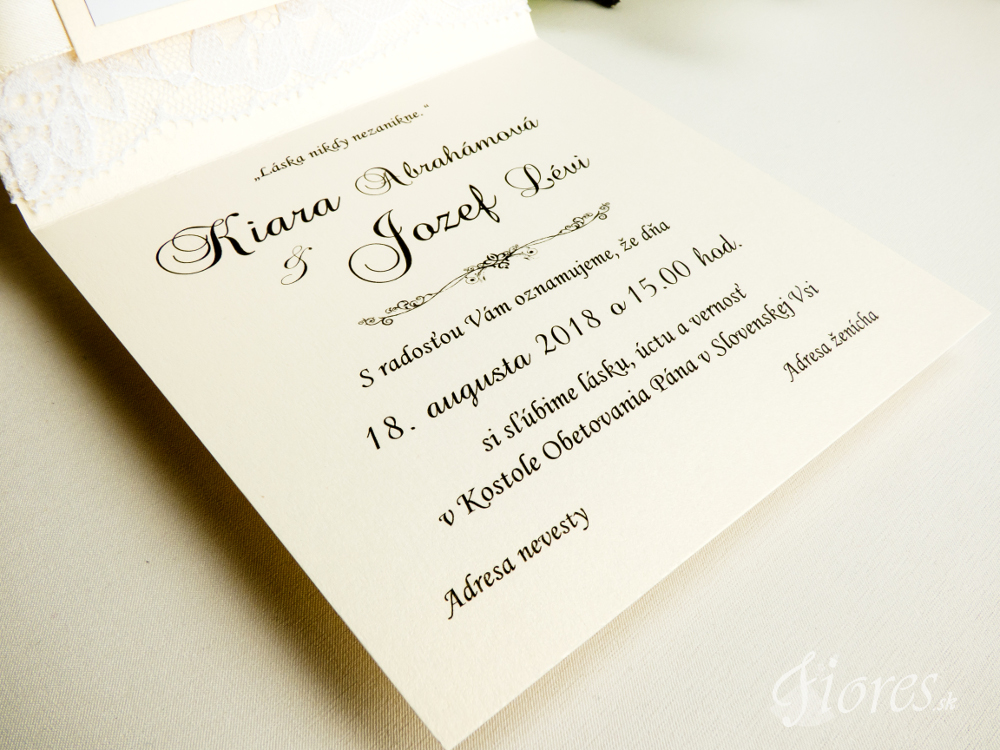 „Láska nikdy nezanikne.“
Kiara Abrahámová
& Jozef Lévi
S radosťou Vám oznamujeme, že dňa
18. augusta 2018 o 15.00 hod.
si sľúbime lásku, úctu a vernosť
v Kostole Obetovania Pána v Slovenskej Vsi
Adresa ženícha
Adresa nevesty
Fiores.sk